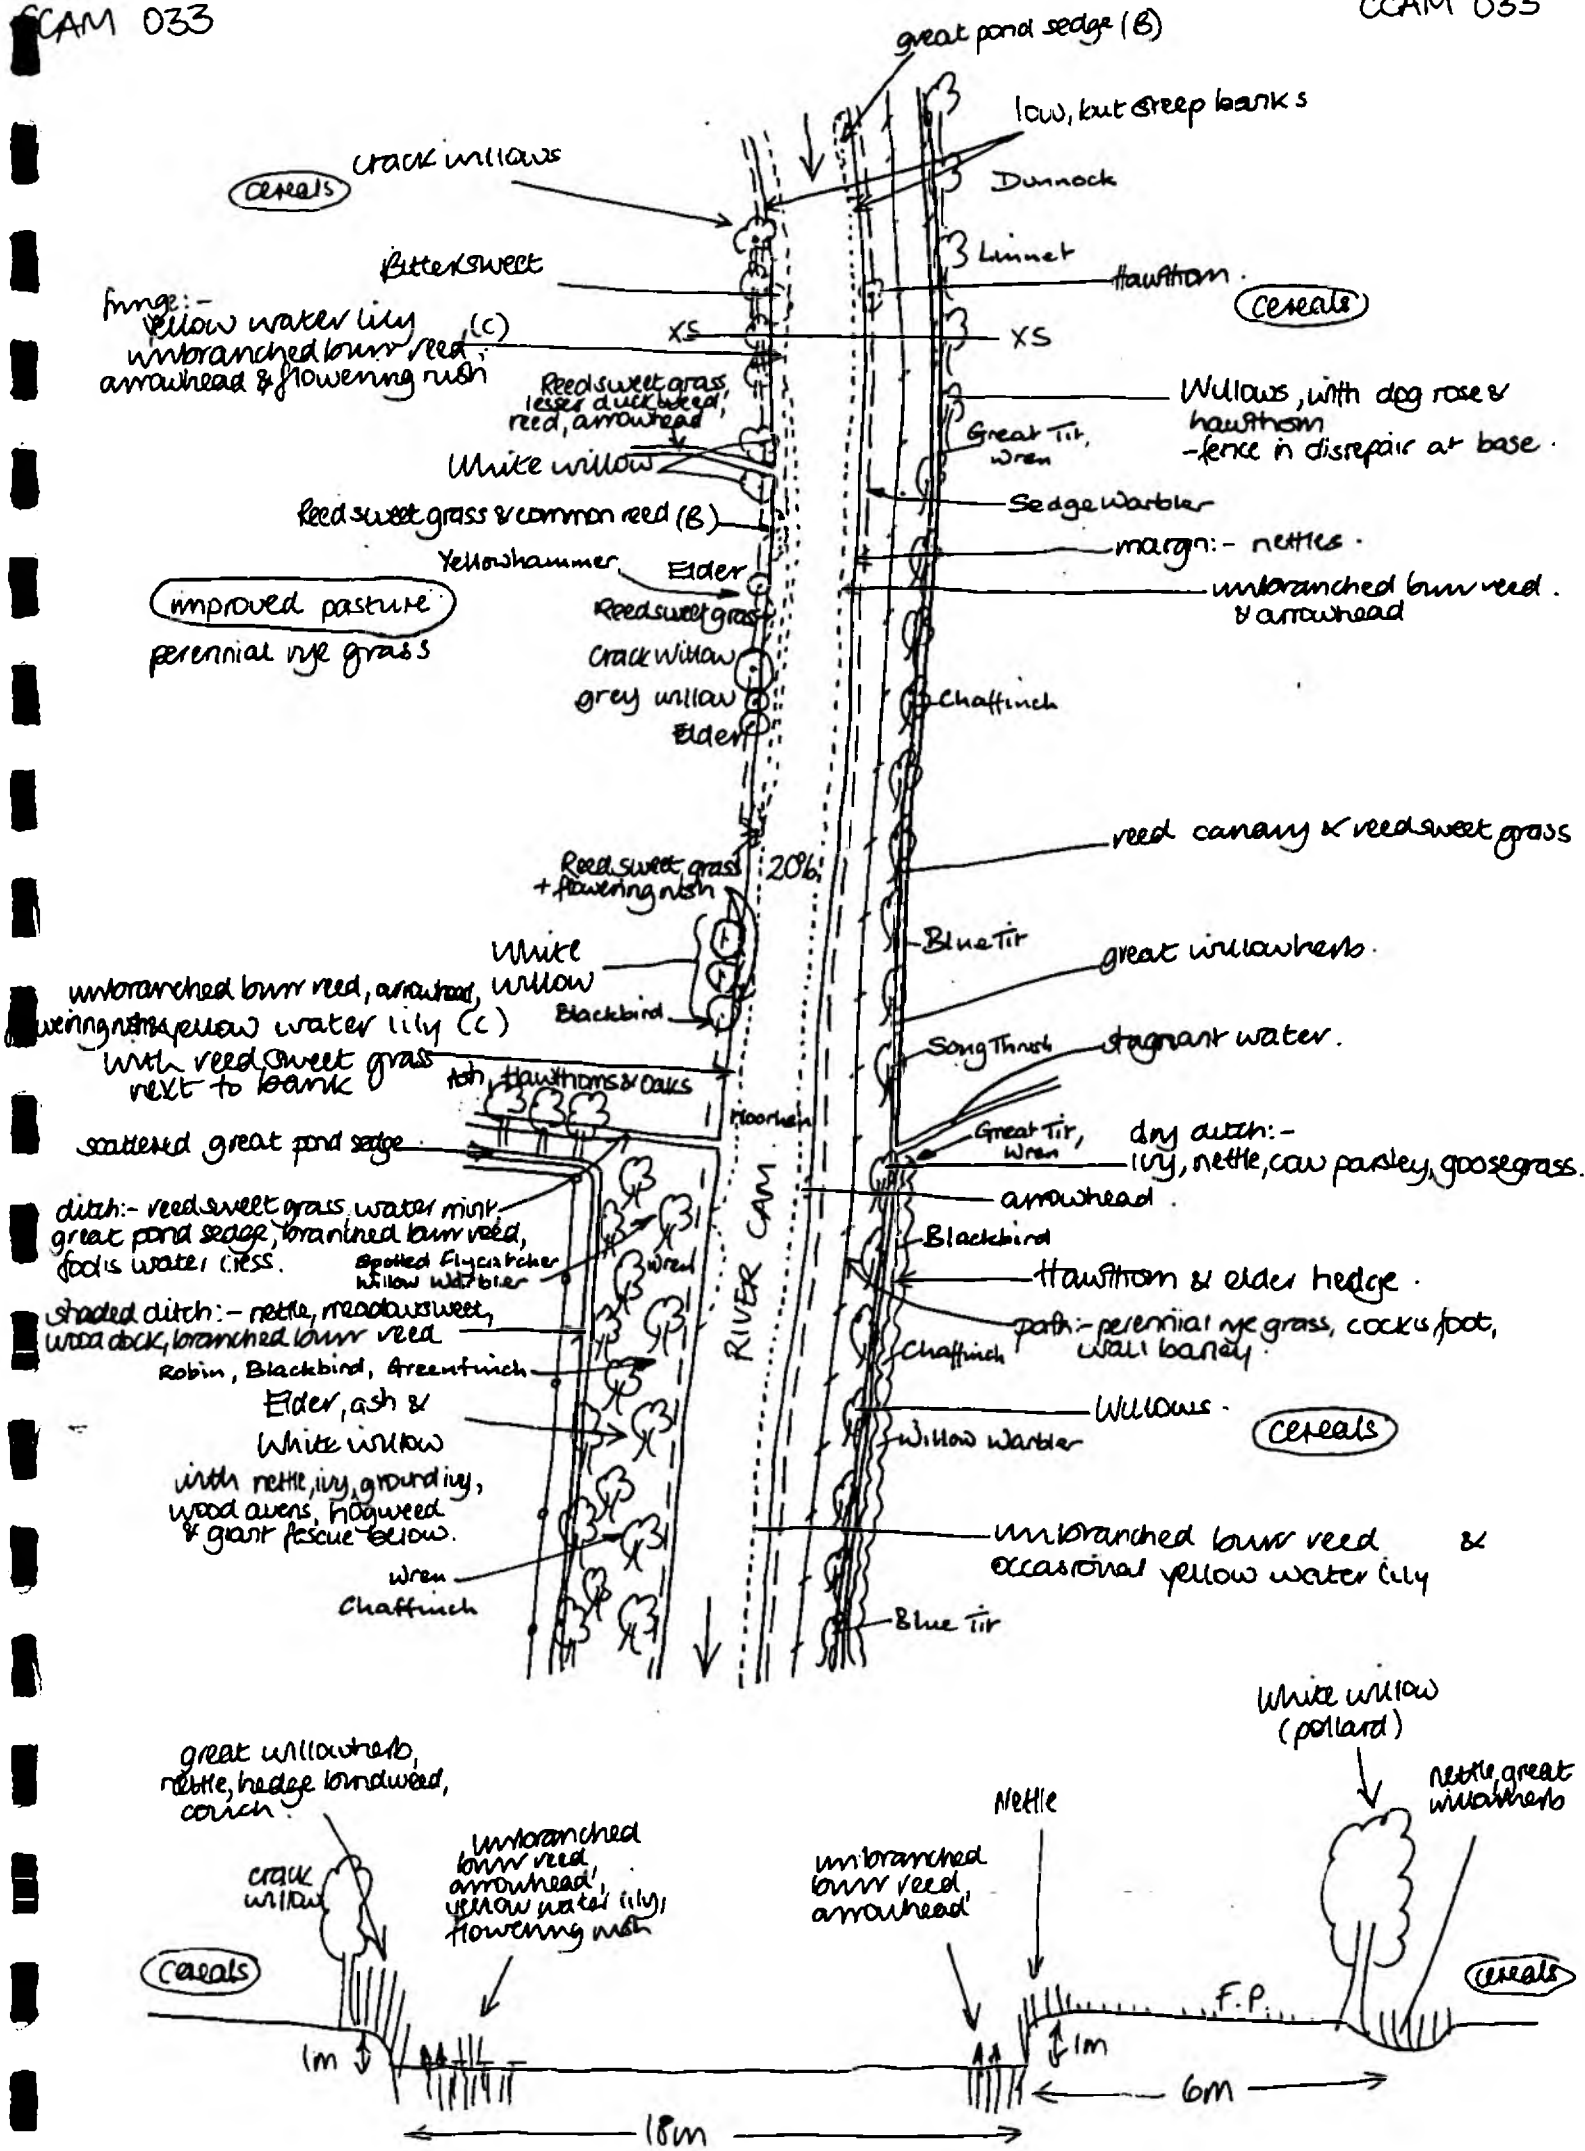 CCAM 033
CCAM 033
great pond sedge (B)
low, but steep banks
crack willows
cereals
Dunnock
Linnet
Bittersweet
Hawthorn.
cereals
fringe:-
yellow water lily
unbranched burr reed, (C)
arrowhead & flowering rush
XS
XS
Reed sweet grass,
lesser duckweed,
reed, arrowhead
Willows, with dog rose &
hawthorn
-fence in disrepair at base.
Great Tit,
Wren
White willow
Sedge Warbler
Reed sweet grass & common reed (B)
margin:- nettles.
Yellowhammer
Elder
unbranched burr reed.
& arrowhead
improved pasture
perennial rye grass
Reed sweet grass
Crack Willow
grey willow
Elder
Chaffinch
reed canary & reed sweet grass
Reed sweet grass
+ flowering rush
20%
White
willow
Blue Tit
great willowherb.
unbranched burr reed, arrowhead,
flowering rush & yellow water lily (C)
with reed sweet grass
next to bank
Blackbird
Song Thrush
stagnant water.
Ash, Hawthorns & Oaks
Moorhen
scattered great pond sedge
Great Tit,
Wren
dry ditch:-
ivy, nettle, cow parsley, goosegrass.
arrowhead.
ditch:- reed sweet grass, water mint
great pond sedge, branched burr reed,
fools water cress.
Spotted Flycatcher
Willow Warbler
Wren
RIVER CAM
Blackbird
Hawthorn & elder hedge.
shaded ditch:- nettle, meadowsweet,
wood dock, branched burr reed
path:- perennial rye grass, cocks foot,
wall barley.
Chaffinch
Robin, Blackbird, Greenfinch
Elder, ash &
White willow
with nettle, ivy, ground ivy,
wood avens, hogweed
& giant fescue below.
Willows.
cereals
Willow Warbler
unbranched burr reed &
occasional yellow water lily
Wren
Chaffinch
Blue Tit
White willow
(pollard)
great willowherb,
nettle, hedge bindweed,
couch.
nettle, great
willowherb
Nettle
crack
willow
unbranched
burr reed
arrowhead,
yellow water lily,
flowering rush
unbranched
burr reed,
arrowhead
cereals
F.P.
cereals
1m
1m
6m
18m